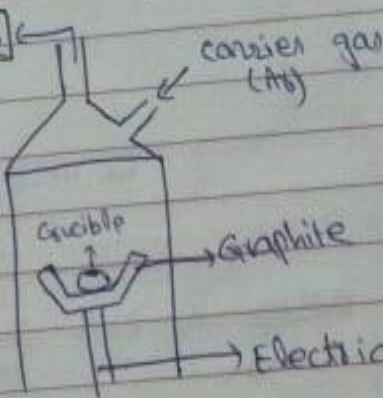 carrier gas
(Ar)
Crucible
Graphite
Electric